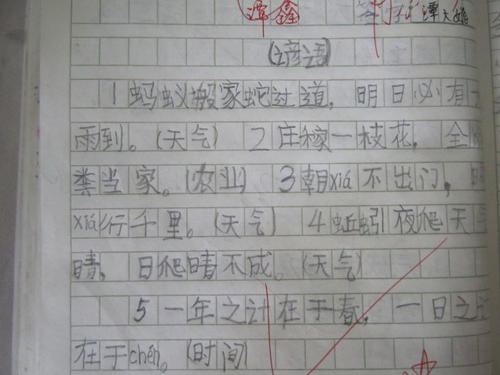 (谚语)
1 蚂蚁搬家蛇过道,明日必有
雨到。(天气) 2 庄稼一枝花,全
粪当家。(农业) 3 朝xiá不出门,
xiá行千里。(天气) 4 蚯蚓夜爬天
晴,日爬晴不成。(天气)
5 一年之计在于春,一日之
在于chén。(时间)